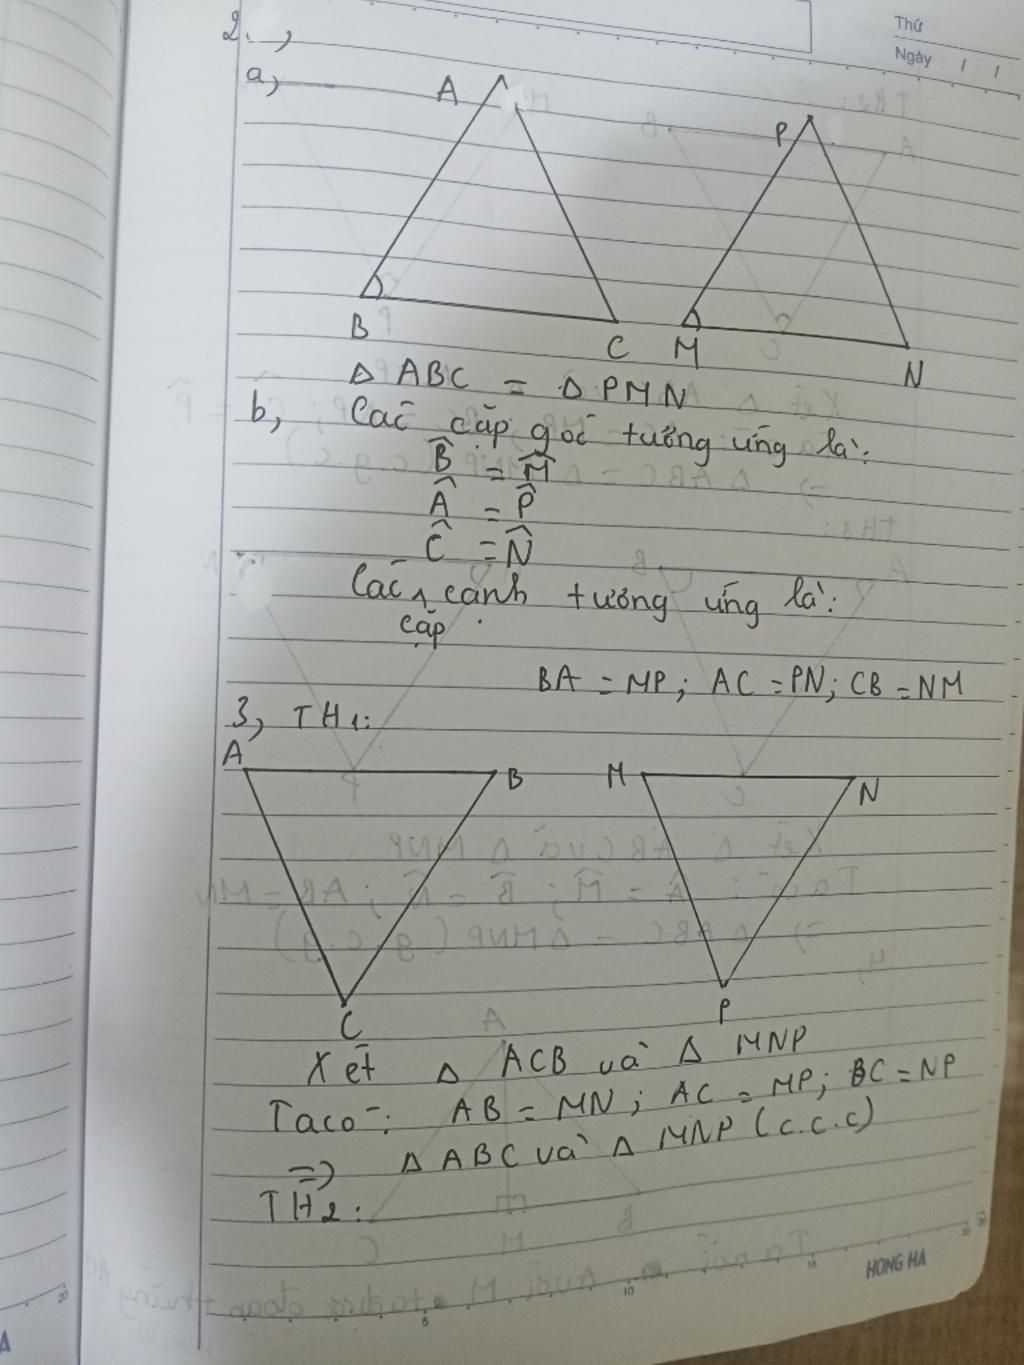 Thứ
Ngày / /
2.,
a,
A
P
B
C
M
N
Δ ABC = Δ PMN
b, Các cặp góc tương ứng là:
B̂ = M̂
Â = P̂
Ĉ = N̂
Các cặp cạnh tương ứng là:
BA = MP; AC = PN; CB = NM
3, TH1:
A
B
M
N
C
P
Xét Δ ACB và Δ MNP
Ta có: AB = MN; AC = MP; BC = NP
=> Δ ABC và Δ MNP (c.c.c)
TH2:
HONG HA
5 10 15 20